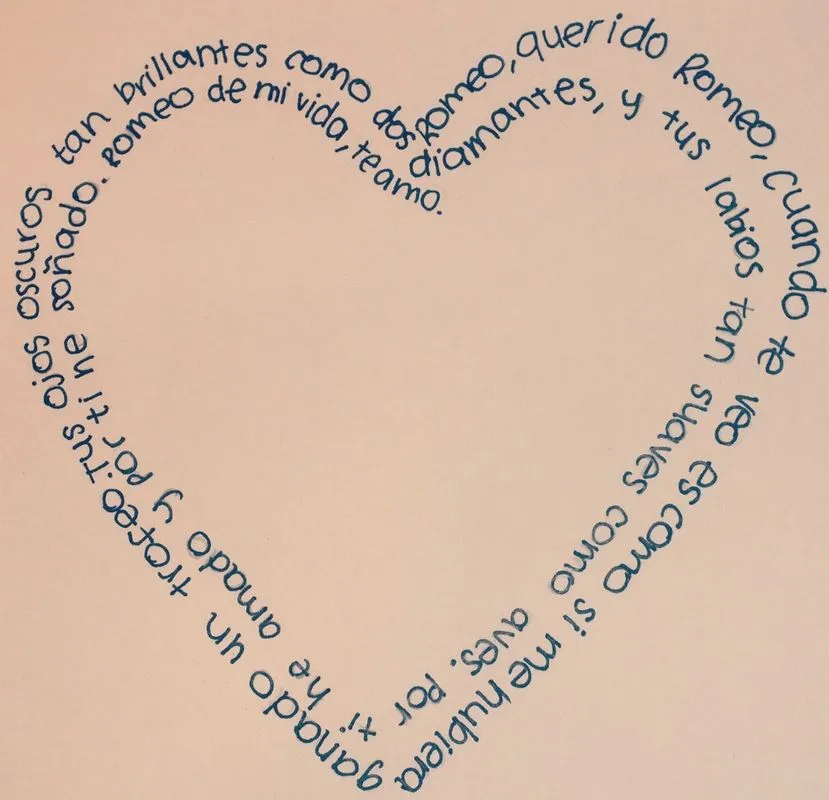 Romeo, querido Romeo, cuando te veo es como si me hubiera ganado un trofeo. Tus ojos oscuros tan brillantes como dos
diamantes, y tus labios tan suaves como aves. Por ti he amado y por ti he soñado. Romeo de mi vida, te amo.